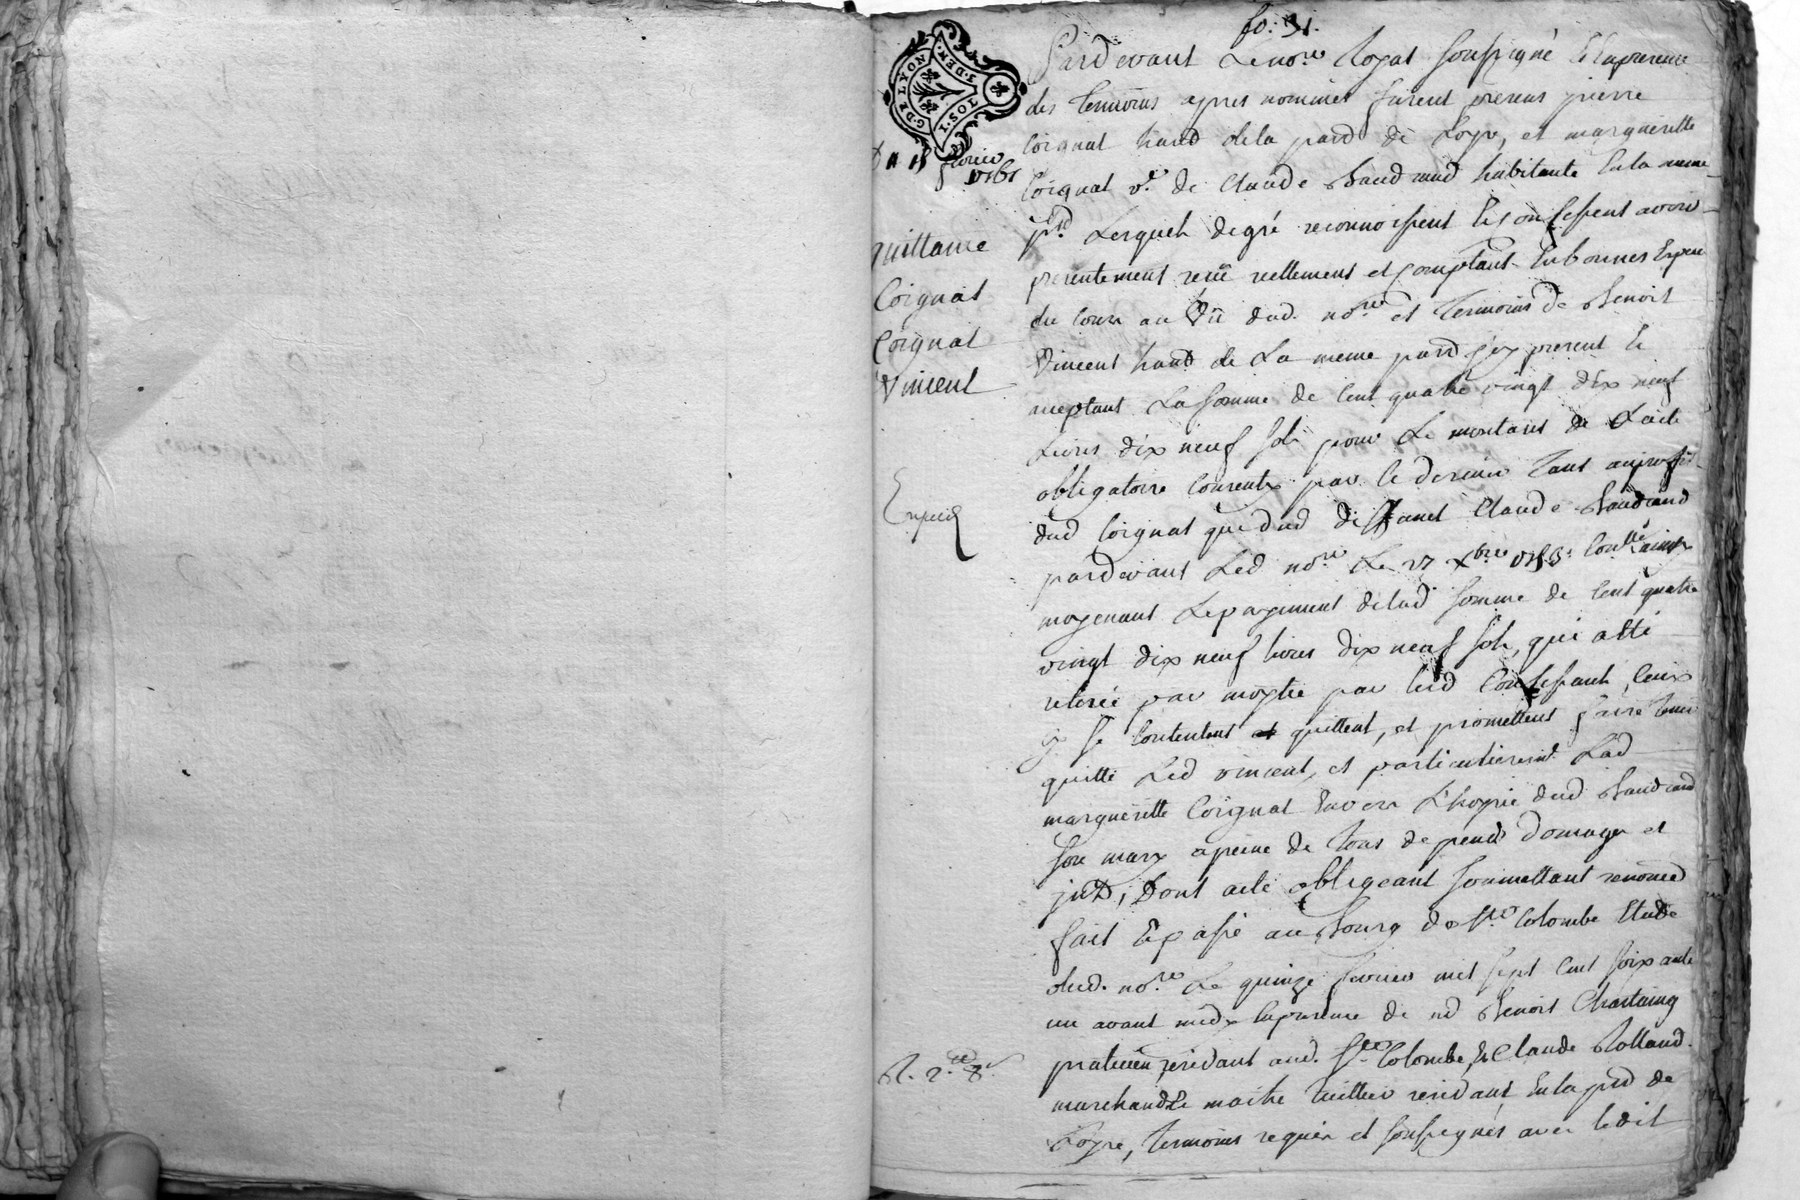 fo. 31.
G. DE LYON
1. SOL
3. DEN.
Du 15 fevrier
1761
quittance
Coignat
Coignat
Vincent
Expedi
R. 2.
Pardevant Le no.re Royal soussigné et en presence
des temoins apres nommés furent presens pierre
Coignat habd de la pard de Loyre, et margueritte
Coignat v.e de Claude Baudrand habitante en la meme
p.sse Lesquels degré reconnoissent et confessent avoir
presentement receü reellement et comptant en bonnes Especes
du cours au vü dud. no.re et temoins de Benoit
Vincent habd de La meme parsse icy present et
acceptant La somme de Cent quatre vingt dix neuf
Livres dix neuf sols pour Le montant de L'acte
obligatoire Consenty par le dernier tant au proffit
dud Coignat que dud deffunct Claude Baudrand
pardevant Led no.re Le 27 xbre
moyenant Le payement de lad somme de Cent quatre
vingt dix neuf livres dix neuf sols, qui a été
retirée par moytié par lesd Confessants, Ceux
cy se Contentent et quittent, et promettent faire tenir
quitte Led vincent, et particulierem.t Lad
margueritte Coignat Envers L'hoyrie dud Baudrand
son mary a peine de tous depends domages et
, Dont acte obligeant soumettant renonced
fait Et passé au Bourg de Ste Colombe Etude
dud. no.re Le quinze fevrier mil sept cent soixante
un avant midy En presence de Benoit Chartaing
praticien residant aud. Ste Colombe, et Claude Rolland
marchand et maitre tuillier residant En la psd de
Loyre, temoins requis et soussignés avec ledit